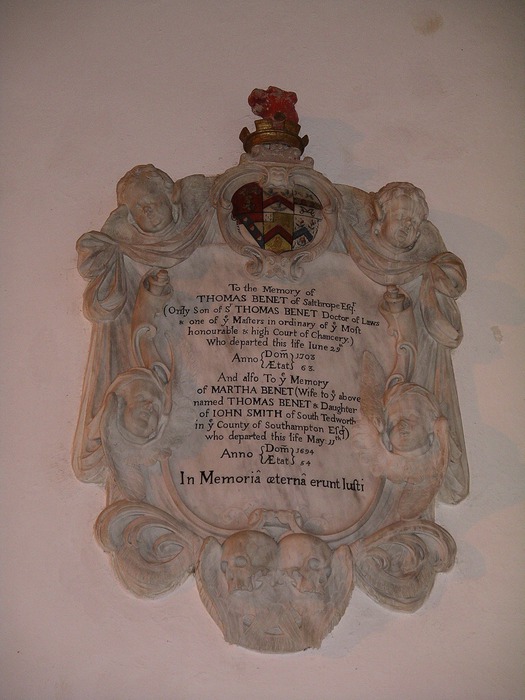 To the Memory of
THOMAS BENET of Salthrope Esqr
(Only Son of Sr THOMAS BENET Doctor of Laws
& one of ye Masters in ordinary of ye Most
honourable & high Court of Chancery.)
Who departed this life Iune 29th
Anno {Dom̄} 1703
{Ætat} 63.
And also To ye Memory
of MARTHA BENET (Wife to ye above
named THOMAS BENET & Daughter
of IOHN SMITH of South Tedworth
in ye County of Southampton Esqr)
who departed this life May 11th
Anno {Dom̄} 1694
{Ætat} 54
In Memoriâ æternâ erunt Iusti